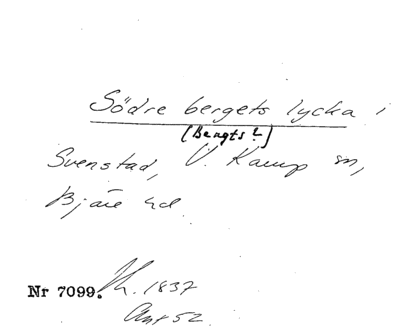 Södre bergets lycka i
(Bengts?)
Svenstad, V. Karup sn,
Bjäre hd.
Nr 7099. Lk. 1837
Akt 52.